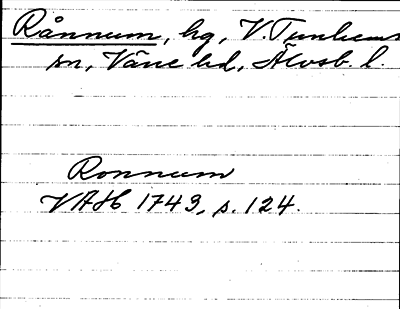 Rånnum, hg, V. Tunhems
sn, Väne hd, Älvsb. l.
Ronnum
VAH 1743, s. 124.